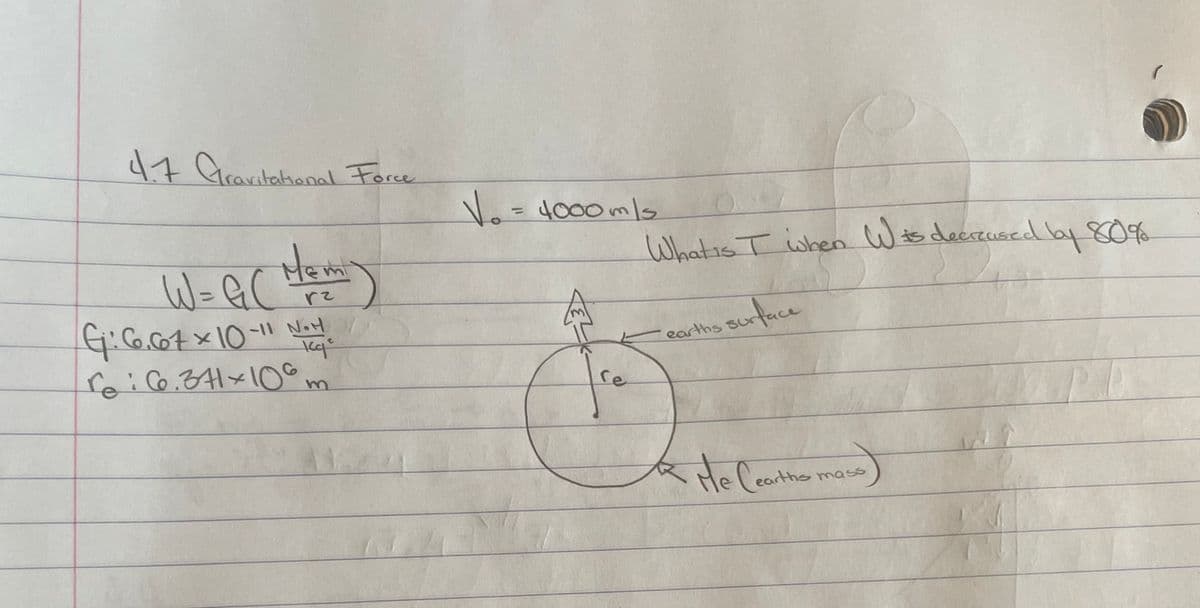 4.7 Gravitational Force
V₀ = 4000 m/s
What is T when W is decreased by 80%
W = G( Mem / r2 )
G: 6.67 × 10-11 N·M / kg²
re: 6.371×10⁶ m
m
earths surface
re
Me (earths mass)